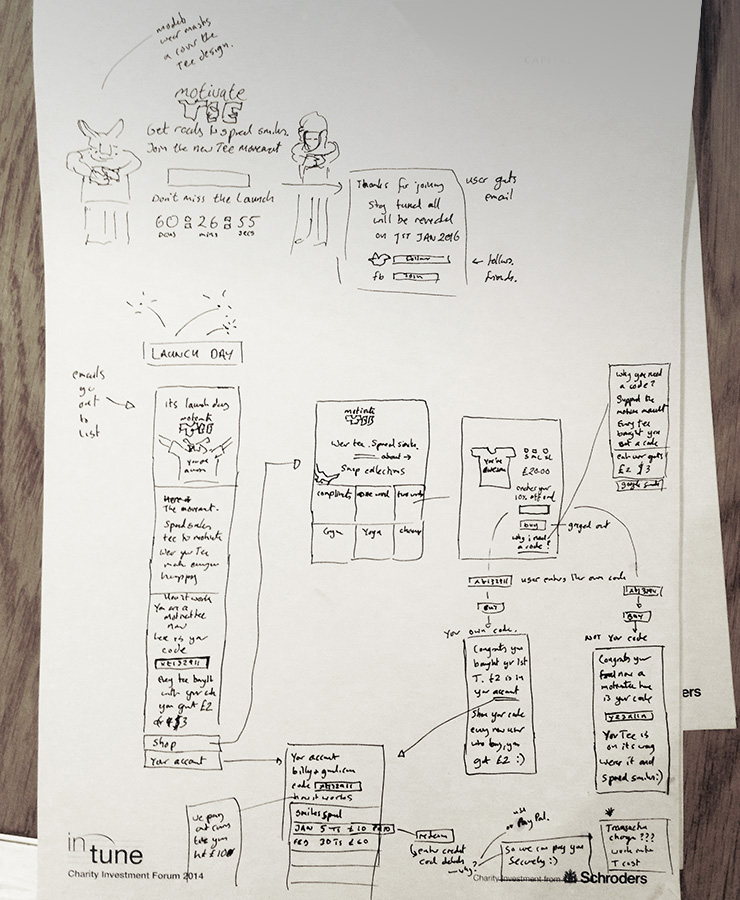 models
wear masks
& cover the
Tee design.
motivate
TEE
Get ready to spread smiles.
Join the new Tee movement
Don't miss the Launch
60 : 26 : 55
DAYS MINS SECS
Thanks for joining
stay tuned all
will be reveded
on 1ST JAN 2016
Follow
fb Join
user gets
email
← follows.
friends.
LAUNCH DAY
emails
go
out
to
list
its launch day
motivate
TEE
you're
awesome
The movement.
Spread smiles
tee to motivate
wer your Tee
make everyone
happy
How it work
You are a
motivatee
now
here is your
code
Every tee bought
with your code
you get £2
or $3
Shop
Your account
motivate
TEE
Wer tee. Spread smile.
about →
Shop collections
compliments one word two words
Yoga
you're
awesome
S M L XL
£20.00
enter your
10% off code
buy
why i need
a code?
→ greyed out
Why you need
a code?
Support the
motivate movement
Every tee
bought you
get a code
each user gets
£2 $3
user enters their own code
BUY
BUY
Your own code.
Congrats you
bought your 1st
T. £2 is in
your account
Share your code
every new user
who buy, you
get £2 :)
NOT Your code
Congrats your
now a
motivatee here
is your code
Your Tee is
on its way
wear it and
spread smiles :)
Your account
code
how it works
smiles spread
JAN 5 TS £10 PAID
FEB 30 TS £60
we pay
out once
you
hit £10
redeem
enter credit
card details
why?
use
or Pay Pal.
So we can pay you
Securely :)
Transaction
charge ???
work out
T cost
in
tune
Charity Investment Forum 2014
Charity Investment from
Schroders
ers